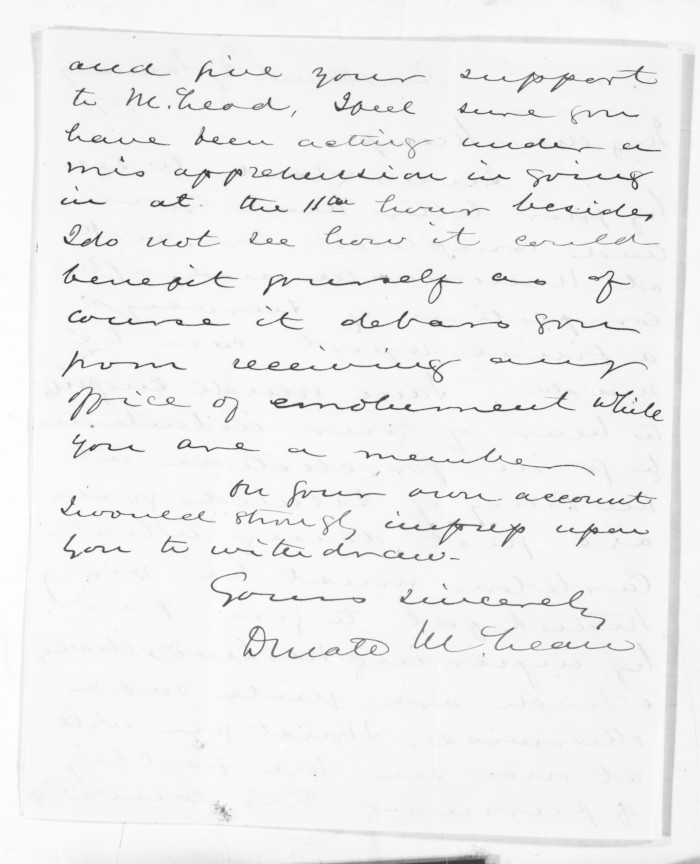 and give your support
to McLeod, I feel sure you
have been acting under a
mis apprehension in going
in at the 11th hour besides
I do not see how it could
benefit yourself as of
course it debars you
from receiving any
office of emolument while
you are a member
On your own account
I would strongly impress upon
you to withdraw.
Yours sincerely
McLean